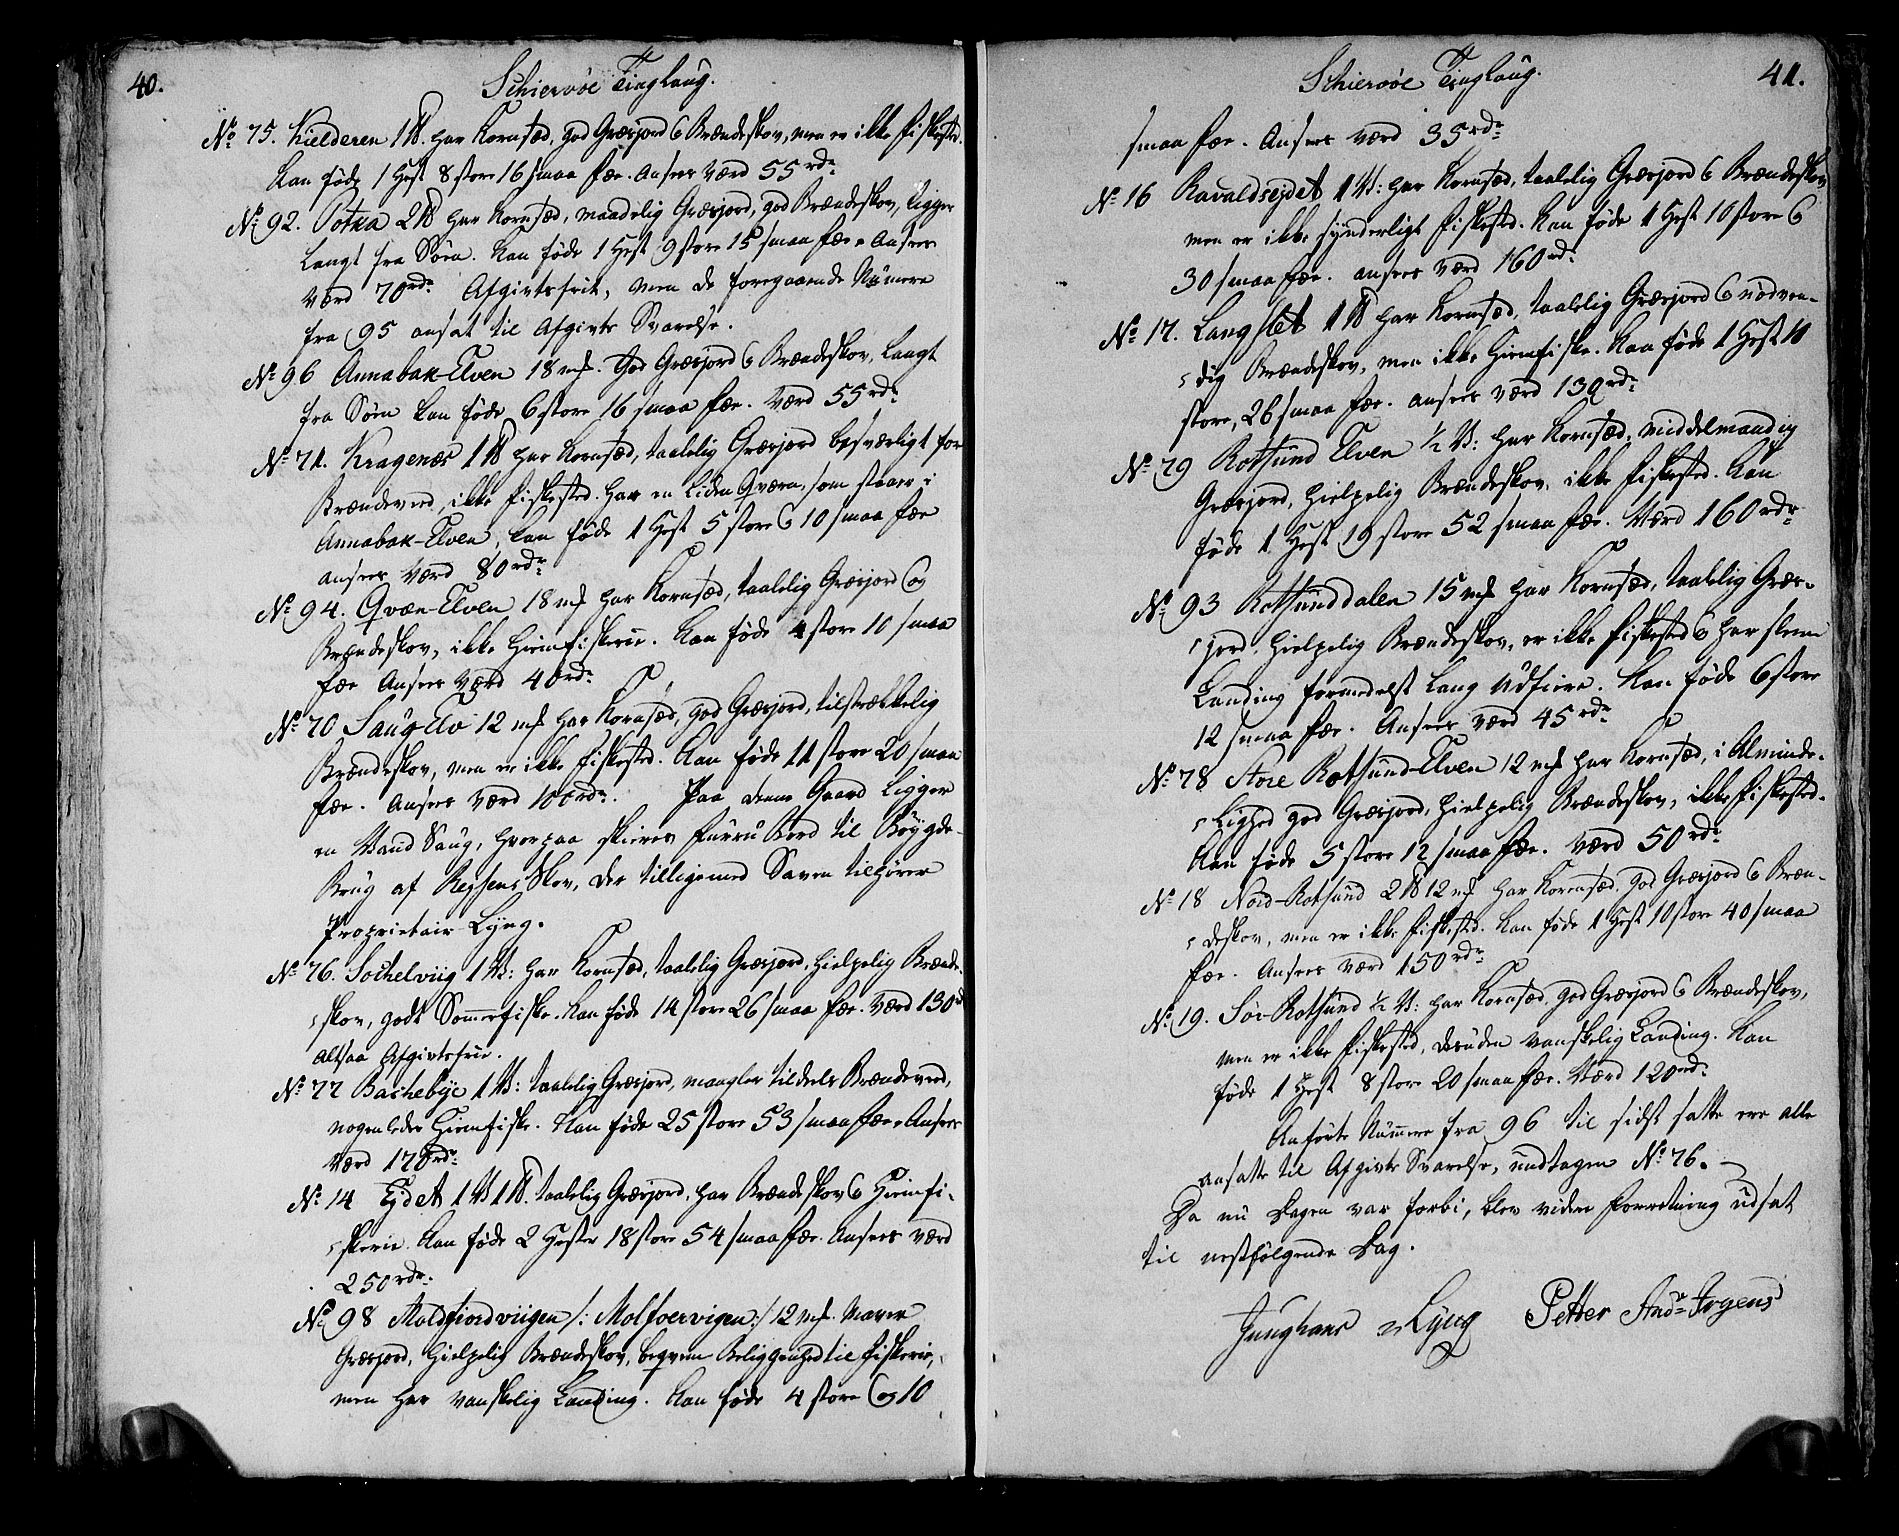 40.
Schiervøe Tinglaug.
No 75. Kielderen 1 ℔. har Kornsæd, god Græsjord & Brændeskov, men er ikke fiskested.
Kan føde 1 Hest 8 store 16 smaa fæe. Ansees værd 55 rdr
No 92. Potka 2 ℔ har Kornsæd, maadelig Græsjord, god Brændeskov, ligger
langt fra Søen. Kan føde 1 Hest 9 store 15 smaa fæe. Ansees
værd 70 rdr Afgivtsfrit, men de foregaaende Numere
fra 95 ansat til Afgivts Svarelse.
No 96 Annabak-Elven 18 mk. God Græsjord & Brændeskov, langt
fra Søen kan føde 6 store 16 smaa fæe. Værd 55 rdr
No 71. Kragenæs 1 ℔ har Kornsæd, taalelig Græsjord besværligt for
Brændeved, ikke fiskested. Har en liden Qværn, som staaer i
Annabak-Elven, kan føde 1 Hest 5 store & 10 smaa fæe
ansees værd 80 rdr
No 94. Qvæn-Elven 18 mk har Kornsæd, taalelig Græsjord og
Brændeskov, ikke Hiemfiskerie. Kan føde 4 store 10 smaa
fæe Ansees værd 40 rdr
No 70 Saug Elv 12 mk har Kornsæd, god Græsjord, tilstrækkelig
Brændeskov, men er ikke fiskested. Kan føde 11 store 20 smaa
fæe. Ansees værd 100 rdr. Paa denne Gaard ligger
en Vand Saug, hvorpaa skieres furru Bord til Bøygde-
Brug af Reysens Skov, der tilligemed Saven tilhører
Proprietair Lyng.
No 76. Sochelviig 1 V: har Kornsæd, taalelig Græsjord, hielpelig Brænde-
skov, godt Sommerfiske. Kan føde 14 store 26 smaa fæe. Værd 130 rd
altsaa Afgivtsfrie.
No 77 Bachebye 1 V: taalelig Græsjord, mangler tildeels Brændeved,
nogenledes Hiemfiske. Kan føde 25 store 53 smaa fæe. Ansees
værd 170 rdr.
No 14 Ejdet 1 V 1 ℔. taalelig Græsjord, har Brændeskov & Hiemfi-
skerie. Kan føde 2 Hester 18 store 54 smaa fæe. Ansees værd
250 rdr.
No 98 Moldfiordviigen /: Molfoervigen :/ 12 mk. Maver
Græsjord, hielpelig Brændeskov, beqvem Beliggenhed til fiskerie,
men har vanskelig Landing. Kan føde 4 store og 10
41.
Schiervøe Tinglaug.
smaa fæe. Ansees værd 35 rdr
No 16 Ravaldsejdet 1 V: har Kornsæd, taalelig Græsjord & Brændeskov
men er ikke synderligt fiskested. Kan føde 1 Hest 10 store &
30 smaa fæe. ansees værd 160 rdr
No 17. Langslet 1 ℔ har Kornsæd, taalelig Græsjord & nødven-
dig Brændeskov, men ikke Hiemfiske. Kan føde 1 Hest 11
store, 26 smaa fæe. ansees værd 130 rdr
No 79 Rotsund Elven ½ V: har Kornsæd, middelmaadig
Græsjord, hielpelig Brændeskov, ikke fiskested. Kan
føde 1 Hest 19 store 52 smaa fæe. Værd 160 rdr
No 93 Rotsunddalen 15 mk har Kornsæd, taalelig Græs-
jord, hielpelig Brændeskov, er ikke fiskested & har slem
Landing formedelst lang Udfiære. Kan føde 6 store
12 smaa fæe. Ansees værd 45 rdr
No 78 Store Rotsund-Elven 12 mk har Kornsæd, i Alminde-
lighed god Græsjord, hielpelig Brændeskov, ikke fiskested.
Kan føde 5 store 12 smaa fæe. værd 50 rdr
No 18 Nord-Rotsund 2 ℔ 12 mk har Kornsæd, god Græsjord & Bræn-
deskov, men er ikke fiskested. Kan føde 1 Hest 10 store 40 smaa
fæe. Ansees værd 150 rdr
No 19. Sør-Rotsund ½ V: har Kornsæd, god Græsjord & Brændeskov,
men er ikke fiskested, desuden vanskelig Landing. Kan
føde 1 Hest 8 store 20 smaa fæe. Værd 120 rdr
Anførte Nummere fra 96 til sidst satte ere alle
ansatte til Afgivts Svarelse, undtagen No 76.
Da nu Dagen var forbi, blev videre Forretning udsat
til nestfølgende Dag.
Junghans Lyng Petter Andr Irgens